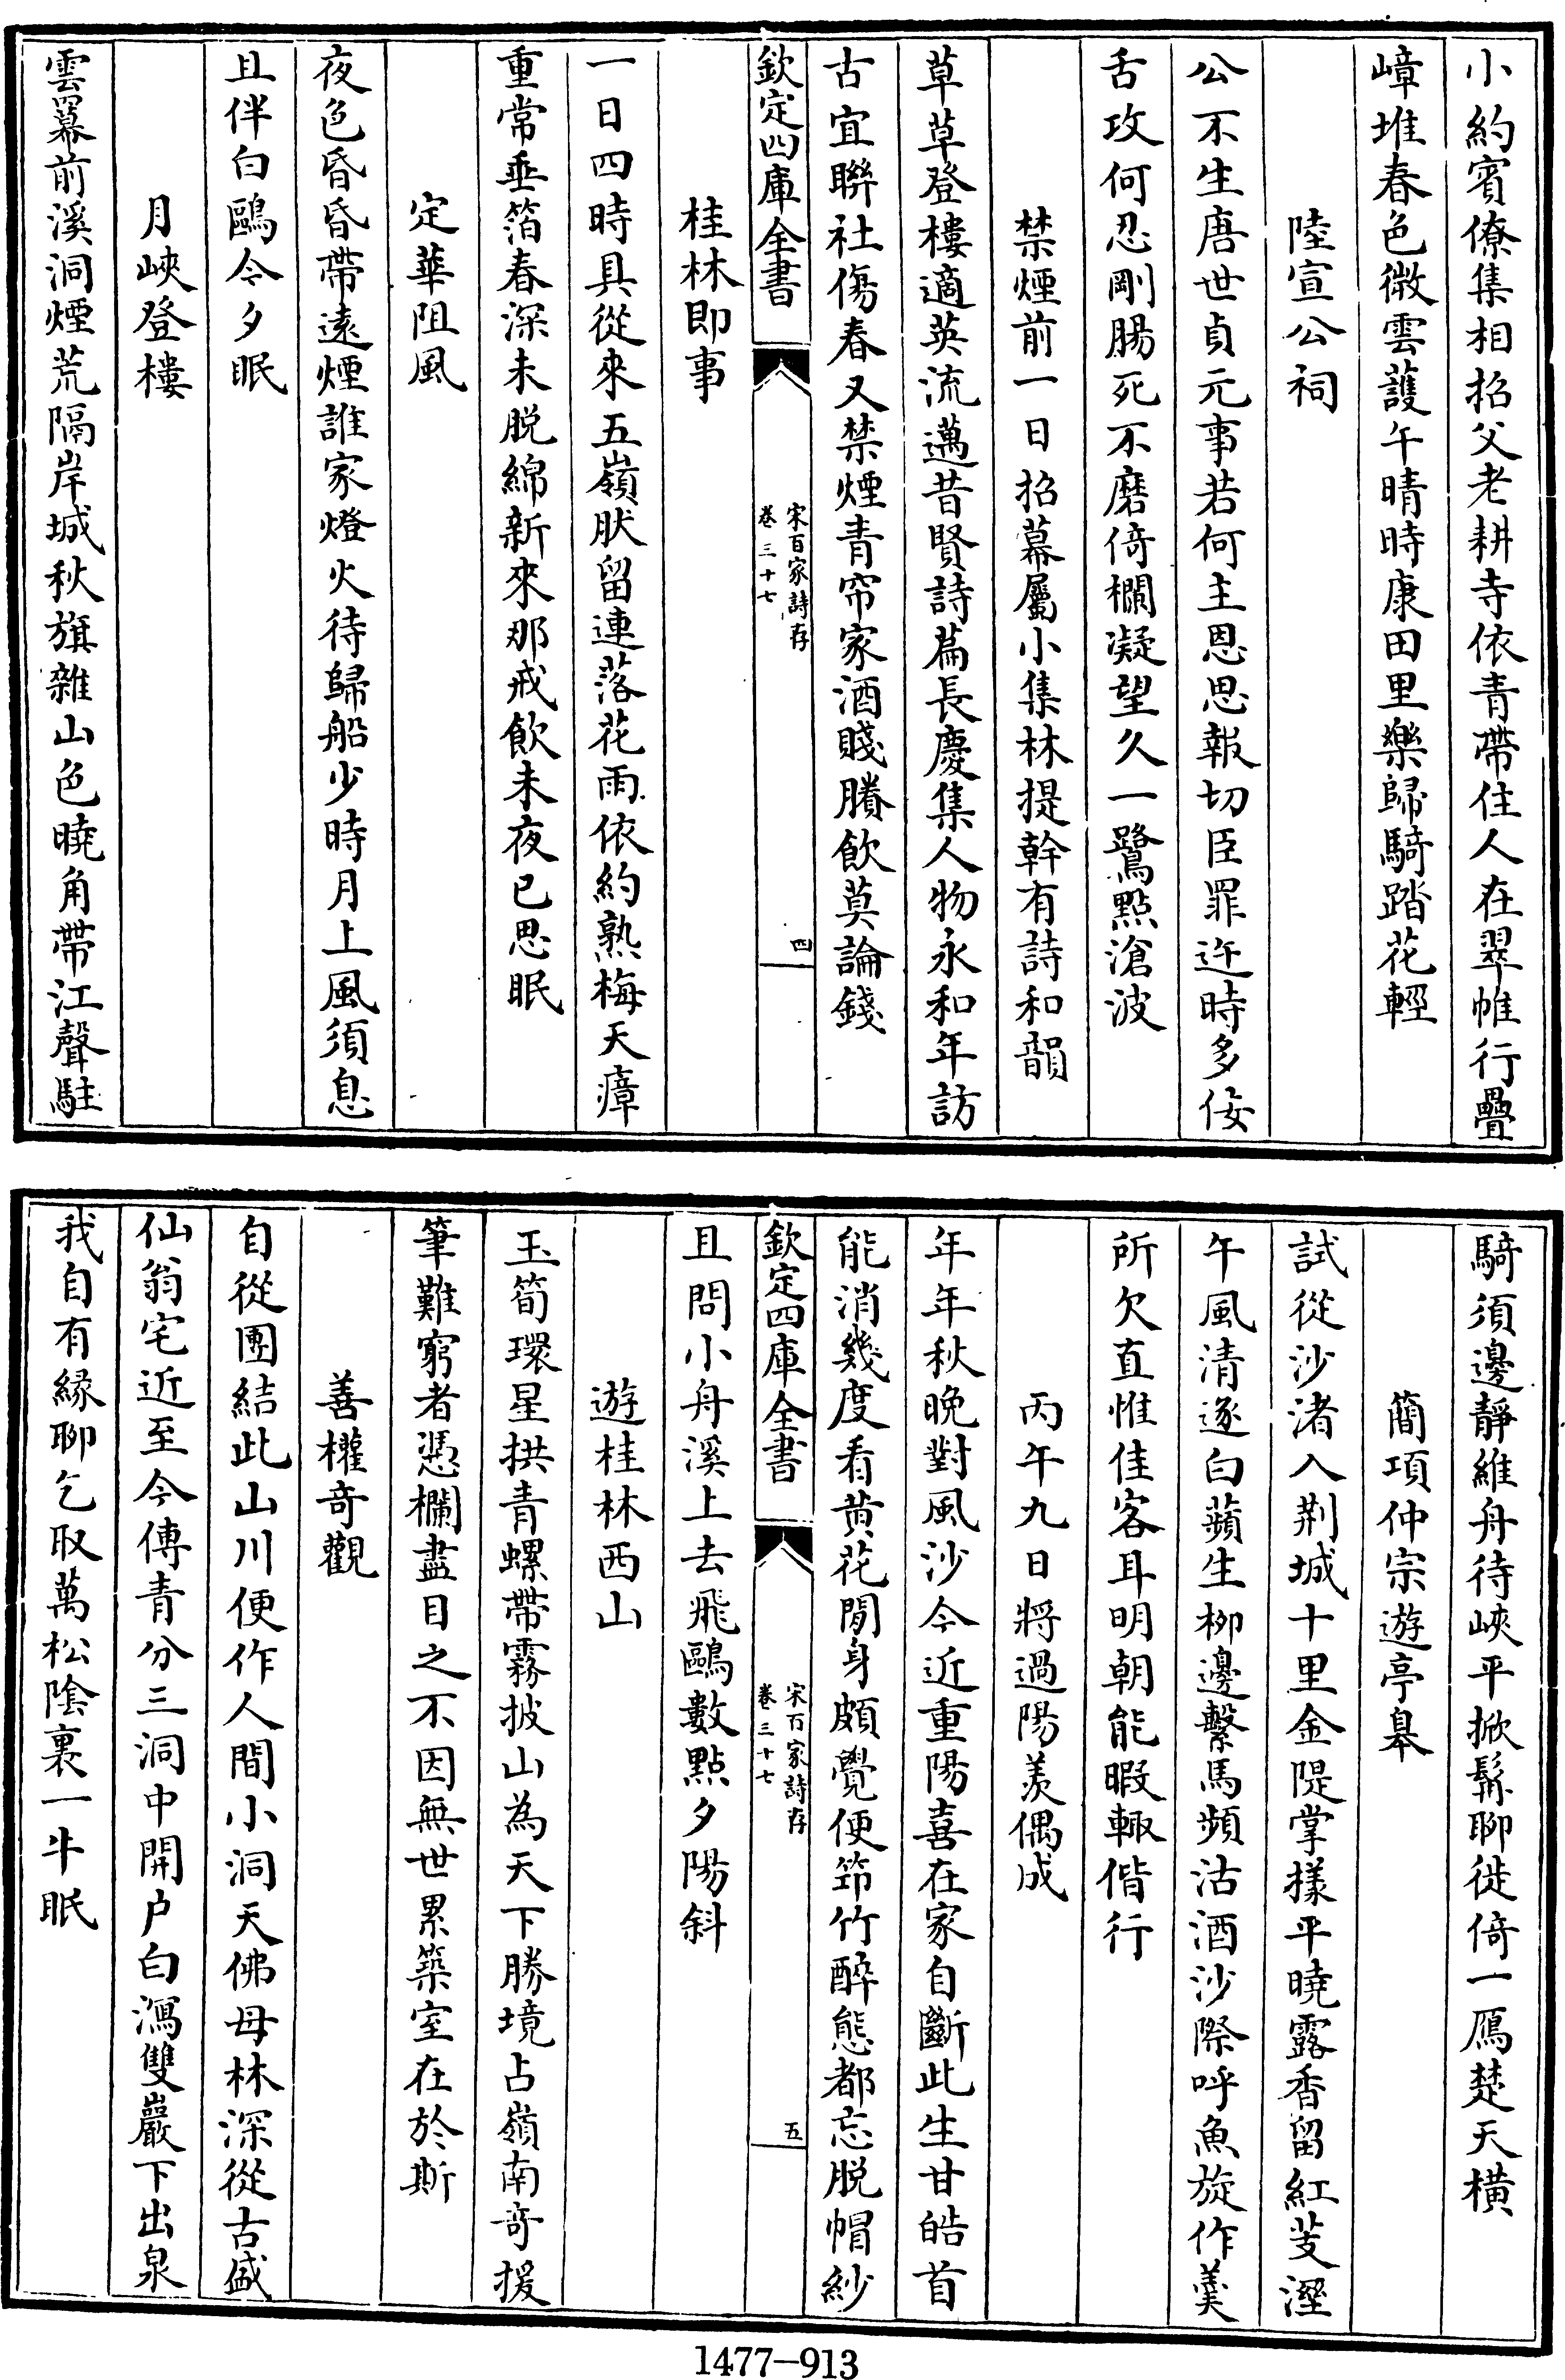 小約賓僚集相招父老耕寺依青帶住人在翠帷行疊
嶂堆春色微雲護午晴時康田里樂歸騎踏花輕
陸宣公祠
公不生唐世貞元事若何主恩思報切臣罪迕時多佞
舌攻何忍剛腸死不磨倚欄凝望久一鷺點滄波
禁煙前一日招幕屬小集林提幹有詩和韻
草草登樓適英流邁昔賢詩篇長慶集人物永和年訪
古宜聯社傷春又禁煙青帘家酒賤賸飲莫論錢
欽定四庫全書
宋百家詩存
卷三十七
四
桂林即事
一日四時具從來五嶺肰留連落花雨依約熟梅天瘴
重常垂箔春深未脱綿新來那戒飲未夜已思眠
定華阻風
夜色昏昏帶遠煙誰家燈火待歸船少時月上風須息
且伴白鷗今夕眠
月峽登樓
雲幕前溪洞煙荒隔岸城秋旗雜山色曉角帶江聲駐
騎須邊靜維舟待峽平掀髯聊徙倚一鴈楚天橫
簡項仲宗遊亭皋
試從沙渚入荆城十里金隄掌樣平曉露香留紅芰溼
午風清逐白蘋生柳邊繫馬頻沽酒沙際呼魚旋作羹
所欠直惟佳客耳明朝能暇輙偕行
丙午九日將過陽羨偶成
年年秋晚對風沙今近重陽喜在家自斷此生甘皓首
能消幾度看黄花閒身頗覺便笻竹醉態都忘脱帽紗
欽定四庫全書
宋百家詩存
卷三十七
五
且問小舟溪上去飛鷗數點夕陽斜
遊桂林西山
玉筍環星拱青螺帶霧披山為天下勝境占嶺南奇援
筆難窮者憑欄盡目之不因無世累築室在於斯
善權奇觀
自從團結此山川便作人間小洞天佛母林深從古盛
仙翁宅近至今傳青分三洞中開户白瀉雙巖下出泉
我自有緣聊乞取萬松陰裏一牛眠
1477-913